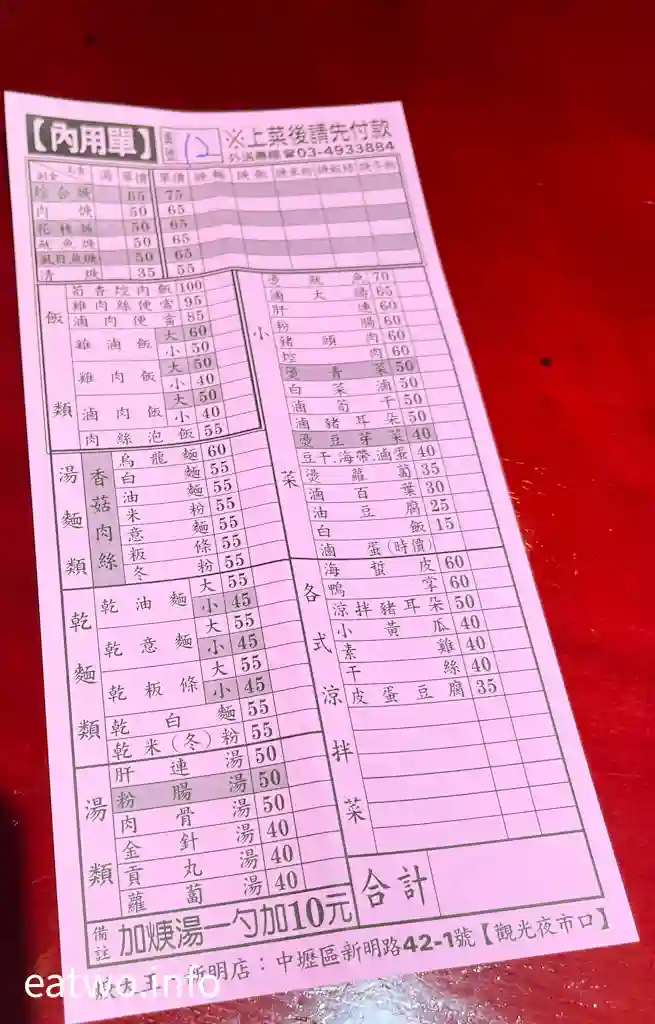 【內用單】 桌號 12 ※上菜後請先付款
外送專線☎03-4933884
主食 湯 單價 單價
綜合焿 65 75
肉焿 50 65
花枝焿 50 65
魷魚焿 50 65
虱目魚焿 50 65
清焿 35 55
飯類
筍香焢肉飯 100
雞肉絲便當 95
滷肉便當 85
雞滷飯 大 60
小 50
雞肉飯 大 50
小 40
滷肉飯 大 50
小 40
肉絲泡飯 55
湯麵類
香菇肉絲
烏龍麵 60
白麵 55
油麵 55
米粉 55
意麵 55
板條 55
冬粉 55
乾麵類
乾油麵 大 55
小 45
乾意麵 大 55
小 45
乾板條 大 55
小 45
乾白麵 55
乾米(冬)粉 55
湯類
肝連湯 50
粉腸湯 50
肉骨湯 50
金針湯 40
貢丸湯 40
蘿蔔湯 40
小菜
燙魷魚 70
滷大腸 65
肝連 60
粉腸 60
豬頭肉 60
焢肉 60
燙青菜 50
白菜滷 50
滷筍干 50
滷豬耳朵 50
燙豆芽菜 40
豆干.海帶.滷蛋 40
燙蘿蔔 35
滷百葉 30
油豆腐 25
白飯 15
滷蛋(時價)
各式涼拌菜
海蜇皮 60
鴨掌 60
涼拌豬耳朵 50
小黃瓜 40
素雞 40
干絲 40
皮蛋豆腐 35
合計
備註 加焿湯一勺加10元
焿大王 新明店：中壢區新明路42-1號【觀光夜市口】
eatwo.info